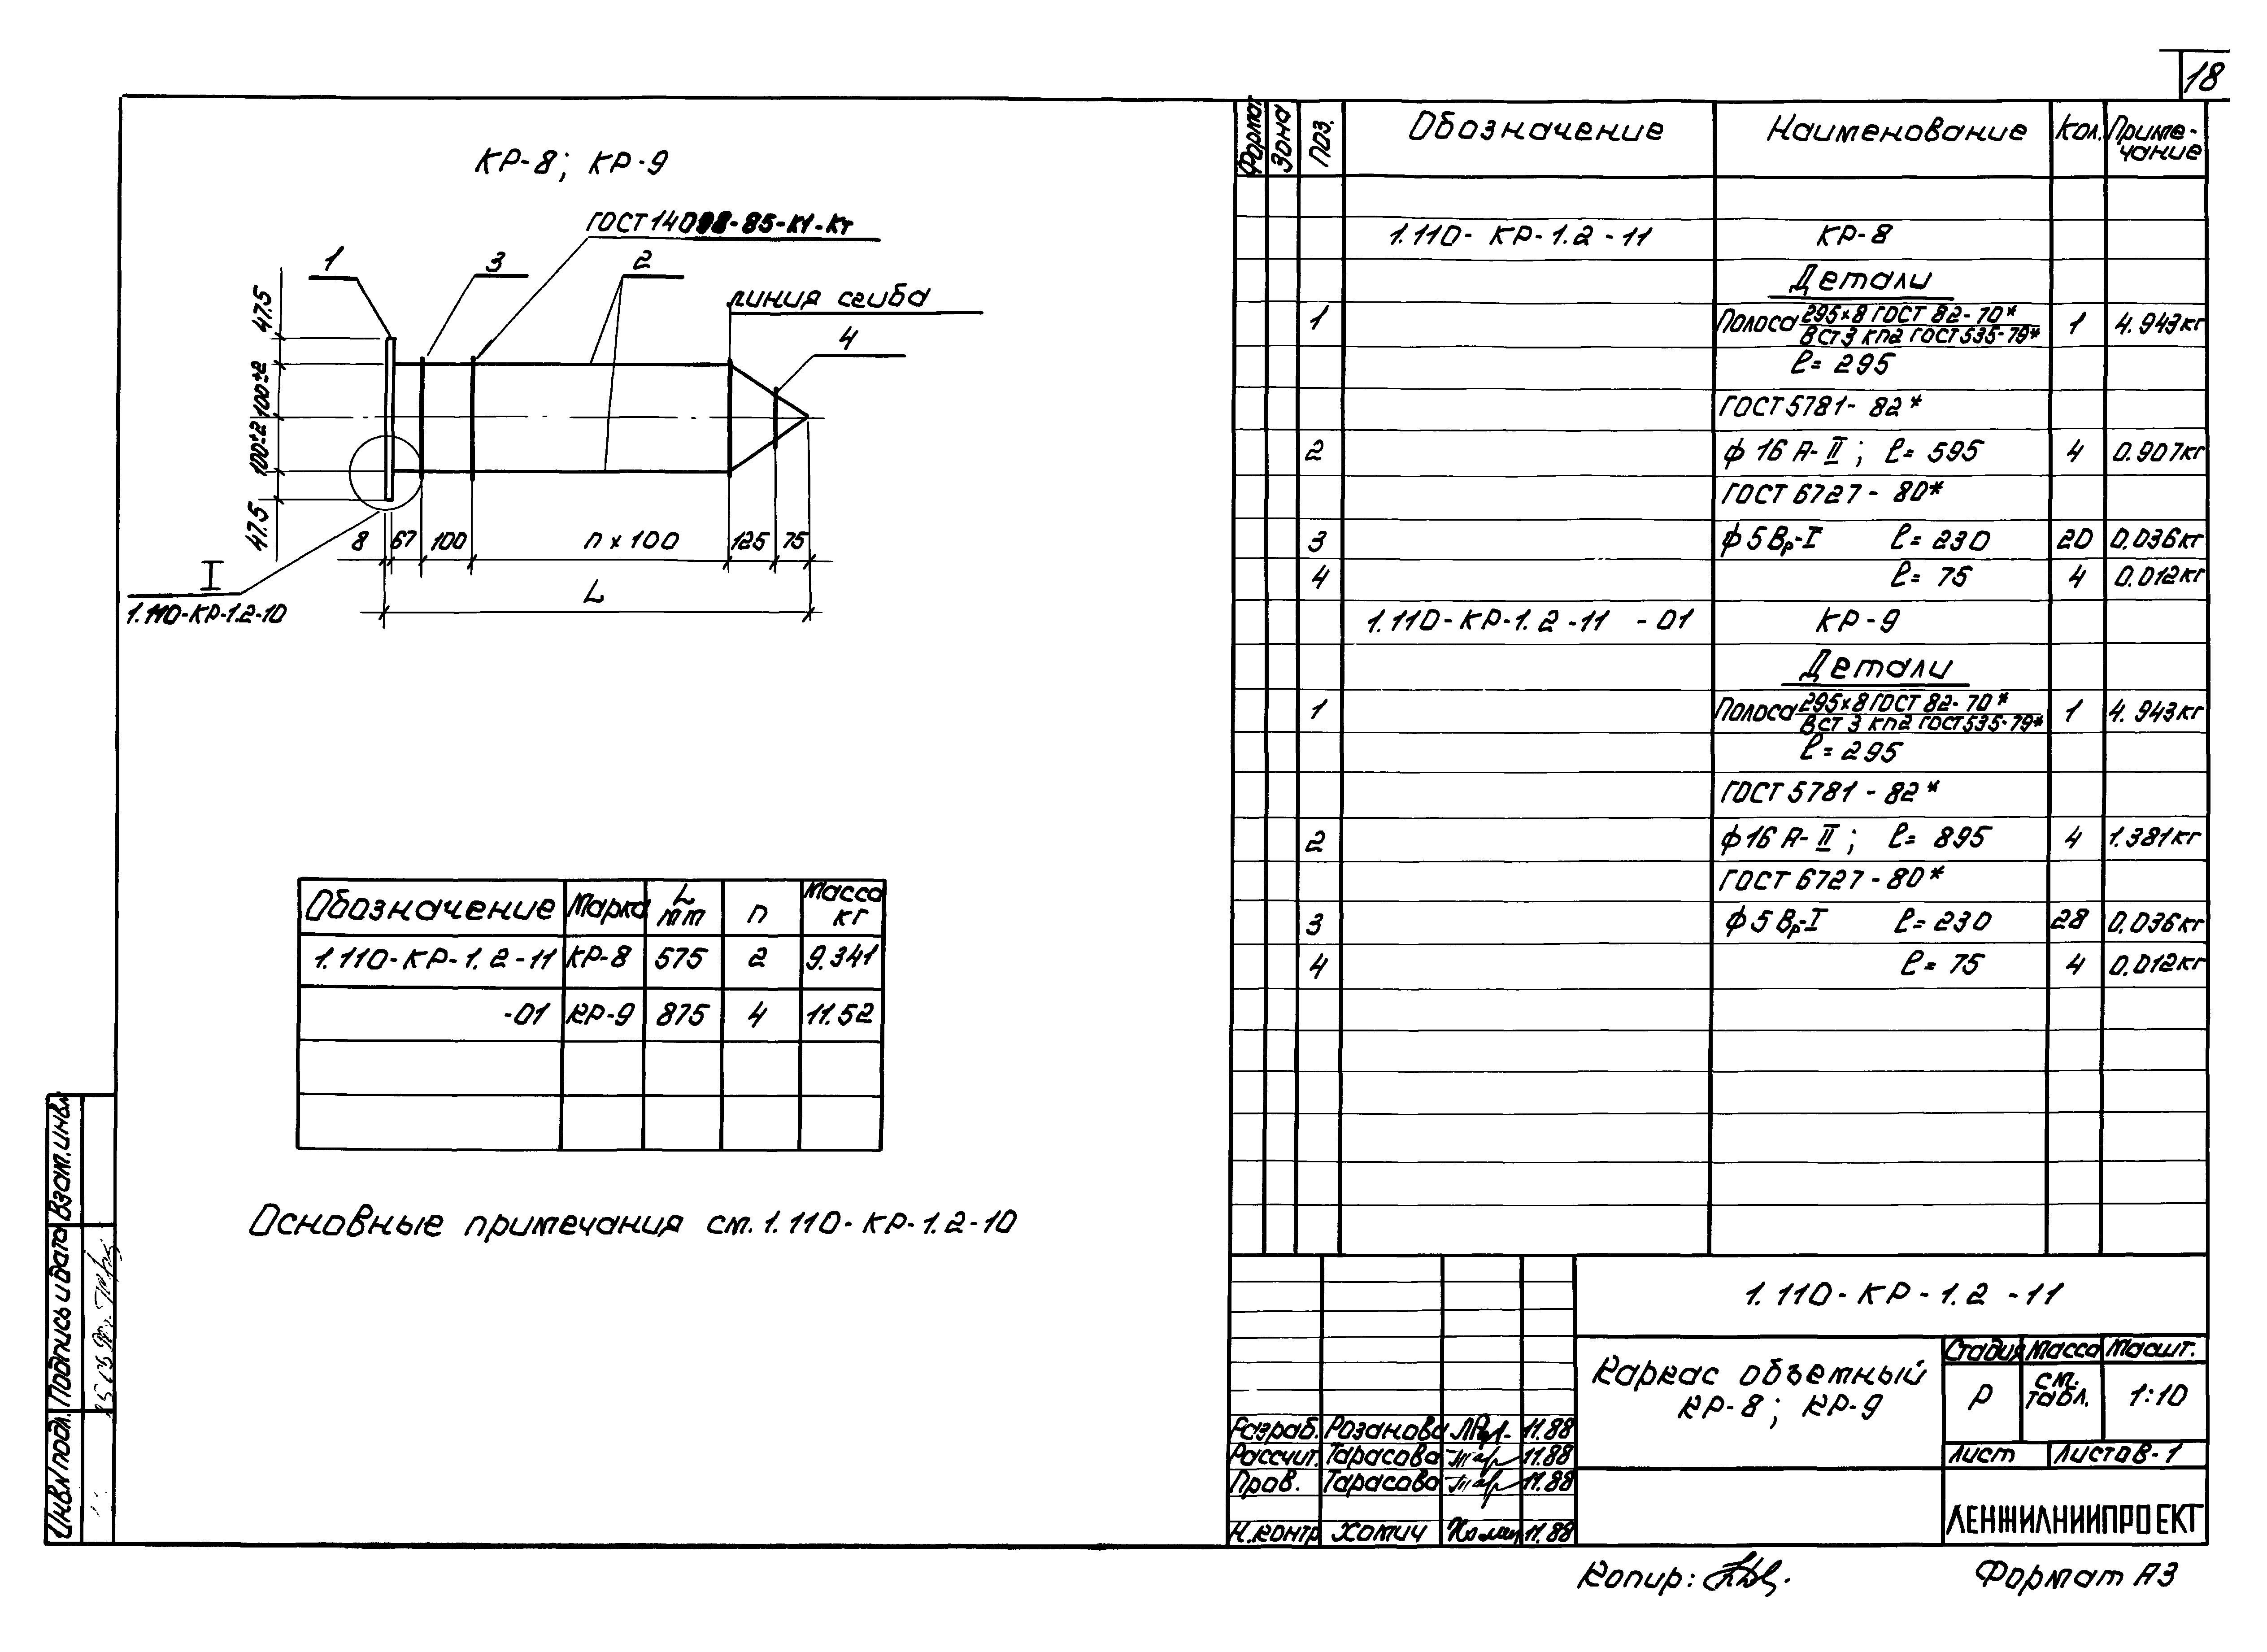 18
КР-8; КР-9
ГОСТ 14098-85-К1-Кт
1
3
2
линия сгиба
4
47.5
100±2
100±2
47.5
8
67
100
n x 100
125
75
L
I
1.110-КР-1.2-10
Обозначение Марка L мм n Масса кг
1.110-КР-1.2-11 КР-8 575 2 9.341
-01 КР-9 875 4 11.52
Основные примечания см. 1.110-КР-1.2-10
Формат Зона Поз. Обозначение Наименование Кол. Приме-чание
1.110-КР-1.2-11 КР-8
Детали
1 Полоса 295x8 ГОСТ 82-70* 1 4.943кг
ВСт3 кп2 ГОСТ535-79*
ℓ=295
ГОСТ 5781-82*
2 ф16 А-II; ℓ=595 4 0.907кг
ГОСТ 6727-80*
3 ф5Вр-I ℓ=230 20 0.036кг
4 ℓ=75 4 0.012кг
1.110-КР-1.2-11 -01 КР-9
Детали
1 Полоса 295x8 ГОСТ 82-70* 1 4.943кг
ВСт3 кп2 ГОСТ535-79*
ℓ=295
ГОСТ 5781-82*
2 ф16 А-II; ℓ=895 4 1.381кг
ГОСТ 6727-80*
3 ф5Вр-I ℓ=230 28 0.036кг
4 ℓ=75 4 0.012кг
1.110-КР-1.2-11
Каркас объемный
КР-8; КР-9
Стадия Масса Масшт.
Р см. табл. 1:10
Лист Листов-1
ЛЕНЖИЛНИИПРОЕКТ
Разраб. Розанова 11.88
Рассчит. Тарасова 11.88
Пров. Тарасова 11.88
Н.контр Хомич 11.88
Копир:
Формат А3
Инв.N подл. Подпись и дата Взам.инв.N